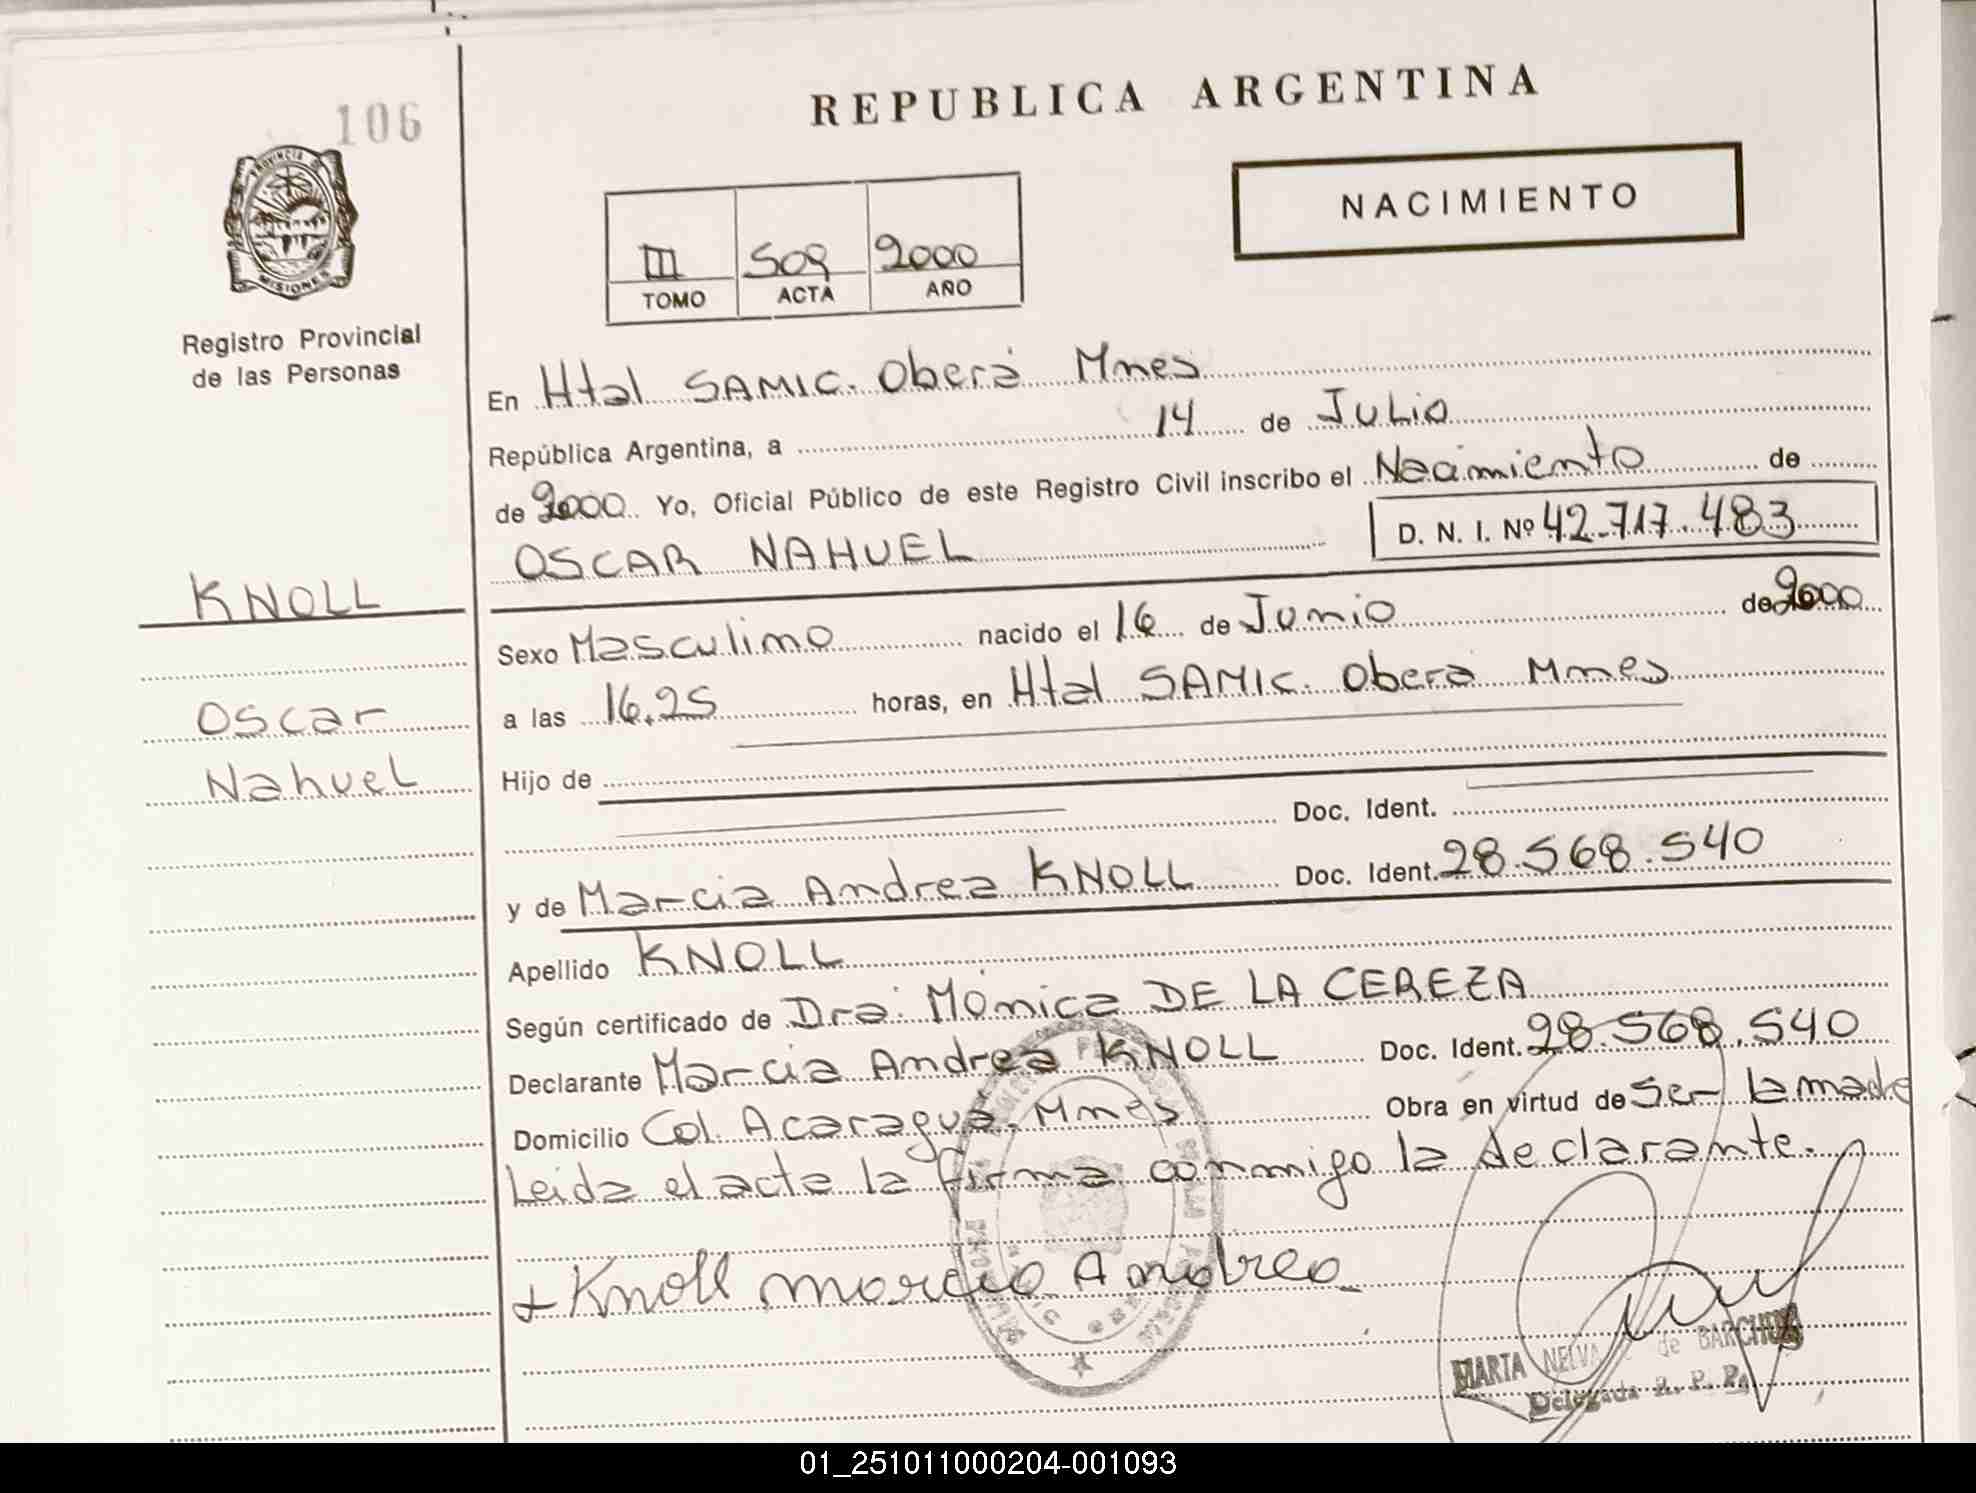 106
REPUBLICA ARGENTINA
NACIMIENTO
PROVINCIA DE
MISIONES
III 509 2000
TOMO ACTA AÑO
Registro Provincial
de las Personas
En Htal SAMIC. Oberá Mnes
República Argentina, a 14 de Julio
de 2000 Yo, Oficial Público de este Registro Civil inscribo el Nacimiento de
OSCAR NAHUEL D. N. I. Nº 42.717.483
KNOLL
Sexo Masculino nacido el 16 de Junio de 2000
Oscar
a las 16.25 horas, en Htal SAMIC. Oberá Mnes
Nahuel
Hijo de
Doc. Ident.
y de Marcia Andrea KNOLL Doc. Ident. 28.568.540
Apellido KNOLL
Según certificado de Dra. Mónica DE LA CEREZA
Declarante Marcia Andrea KNOLL Doc. Ident. 28.568.540
Domicilio Col. Acaragua. Mnes Obra en virtud de Ser la madre
Leida el acta la firma conmigo la declarante.
+ Knoll marcia Andrea
MARTA NELVA de
Delegada R. P. P.
01_251011000204-001093